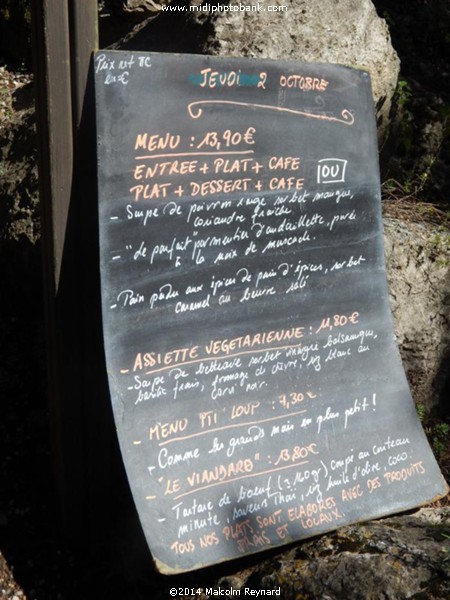 www.midiphotobank.com
Prix net SC
en €
JEUDI 2 OCTOBRE
MENU : 13,90€
ENTREE + PLAT + CAFE
OU
PLAT + DESSERT + CAFE
- Soupe de poivron rouge sorbet mangue,
coriandre fraîche.
- "Le parfait" parmentier d'andouillette, purée
à la noix de muscade.
- Pain perdu aux épices de pain d'épices, sorbet
caramel au beurre salé
- ASSIETTE VEGETARIENNE : 11,80€
- Soupe de betterave sorbet vinaigre balsamique,
basilic frais, fromage de chèvre, riz blanc au
carvi noir.
- MENU P'TI LOUP : 7,30€
- Comme les grands mais en plus petit !
- "LE VIANDARD" : 13,80€
- Tartare de bœuf coupé au couteau
minute, saveurs Thaï, riz, huile d'olive, coco.
TOUS NOS PLATS SONT ELABORES AVEC DES PRODUITS
FRAIS ET LOCAUX.
©2014 Malcolm Reynard